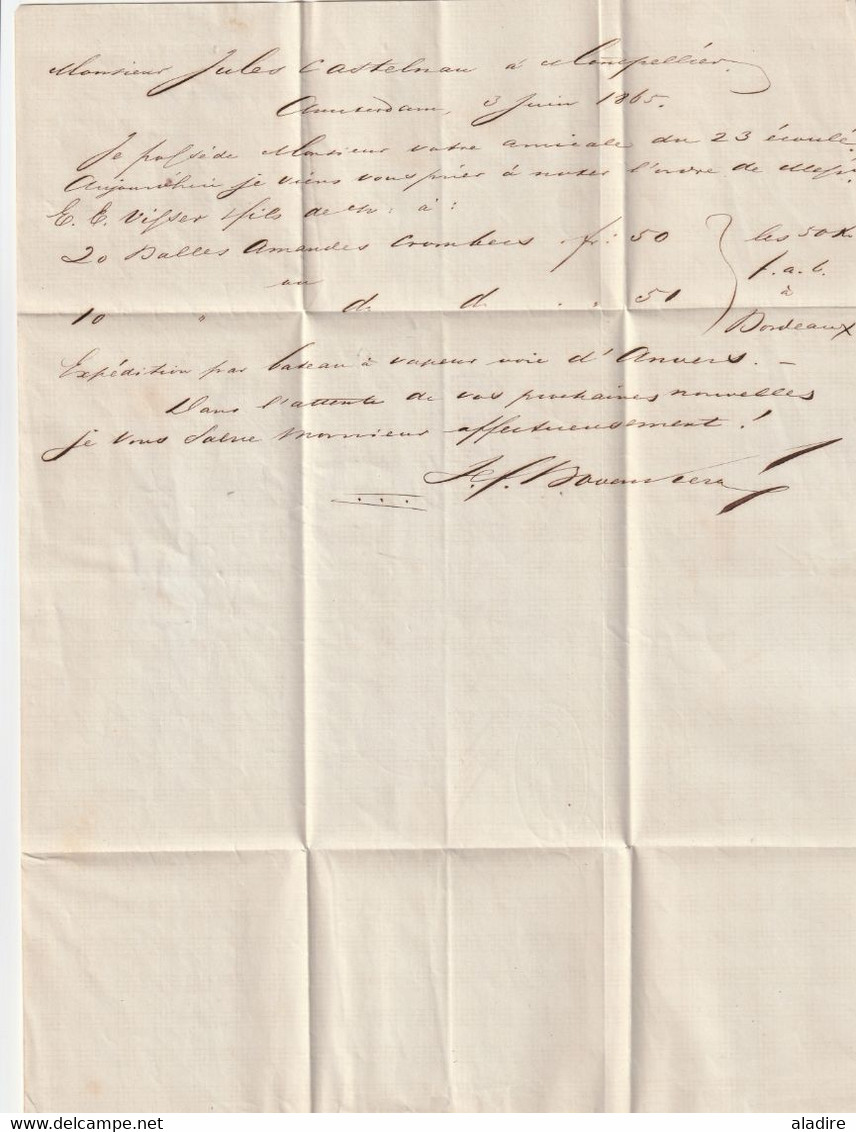 Monsieur Jules Castelnau à Montpellier.
Amsterdam, 3 Juin 1865.
Je possède Monsieur votre amicale du 23 écoulé.
Aujourd'hui je viens vous prier à noter l'ordre de Mess.
E. E. Visser & fils de ch: à:
20 Balles Amandes . fr: 50 les 50 K.
ou f. a. b.
10 " do do . " 51 à
Bordeaux
Expédition par bateau à vapeur voie d'Anvers. —
Dans l'attente de vos prochaines nouvelles
je vous salue Monsieur affectueusement!
delcampe.net
aladire